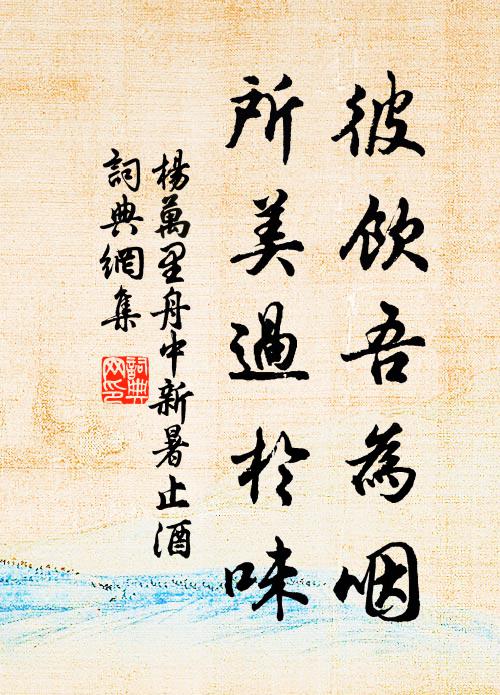 彼飲吾為咽
所美過於味
楊萬里舟中新暑止酒
詞典網集
詞典網印